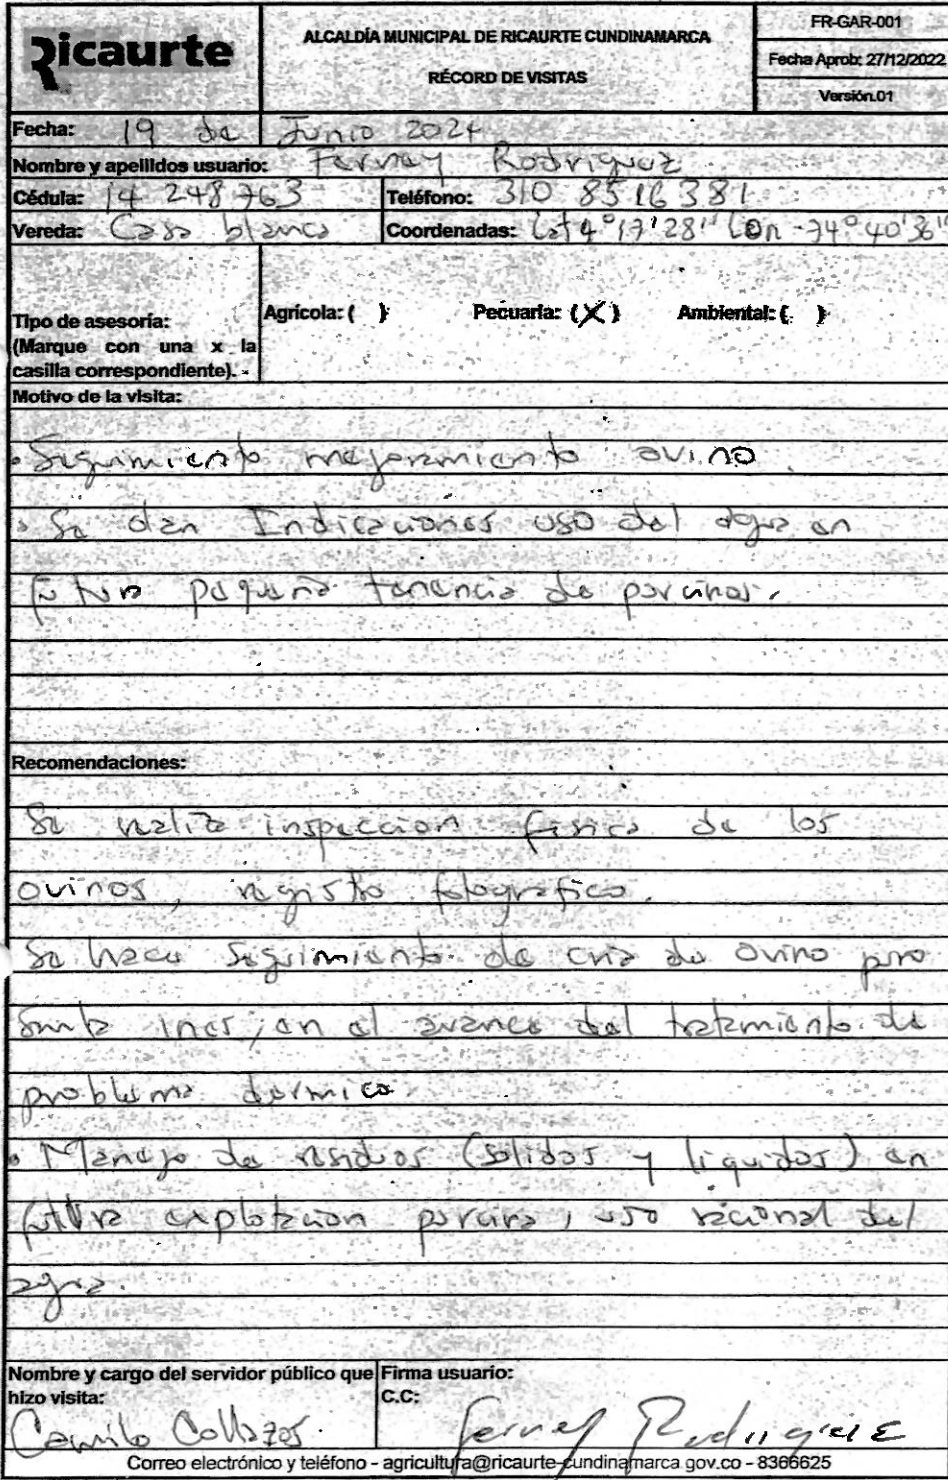 Ricaurte
ALCALDÍA MUNICIPAL DE RICAURTE CUNDINAMARCA
RÉCORD DE VISITAS
FR-GAR-001
Fecha Aprob: 27/12/2022
Versión.01
Fecha: 19 de Junio 2024
Nombre y apellidos usuario: Ferney Rodriguez
Cédula: 14 248 763 Teléfono: 310 8516381
Vereda: Casa blanca Coordenadas: Lat 4°17'28" Lon -74°40'36"
Tipo de asesoría:
(Marque con una x la
casilla correspondiente).
Agrícola: ( ) Pecuaria: (X) Ambiental: ( )
Motivo de la visita:
• Seguimiento mejoramiento ovino.
• Se dan Indicaciones uso del agua en
futura pequeña tenencia de porcinos.
Recomendaciones:
Se realiza inspeccion fisica de los
ovinos, registro fotografico.
Se hace seguimiento de cria de ovino pro
Santa ines, en el avance del tratamiento de
problema dermico
• Manejo de residuos (solidos y liquidos) en
futura explotacion porcina, uso racional del
agua.
Nombre y cargo del servidor público que
hizo visita:
Camilo Collazos.
Firma usuario:
C.C:
Ferney Rodriguez
Correo electrónico y teléfono - agricultura@ricaurte-cundinamarca.gov.co - 8366625